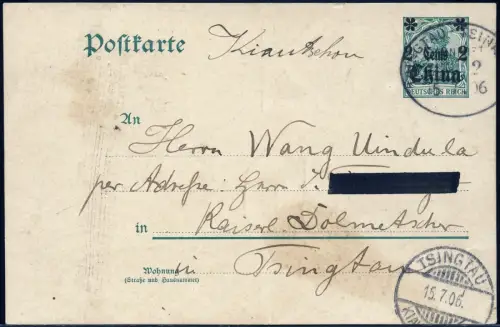 Postkarte
Kiautschou
2 Cents 2
China
DEUTSCHES REICH
TSINGTAU
An
Herrn Wang
per Adresse: Herrn
in Kaiserl. Dolmetscher
Wohnung
(Straße und Hausnummer)
in Tsingtau
TSINGTAU
15.7.06.